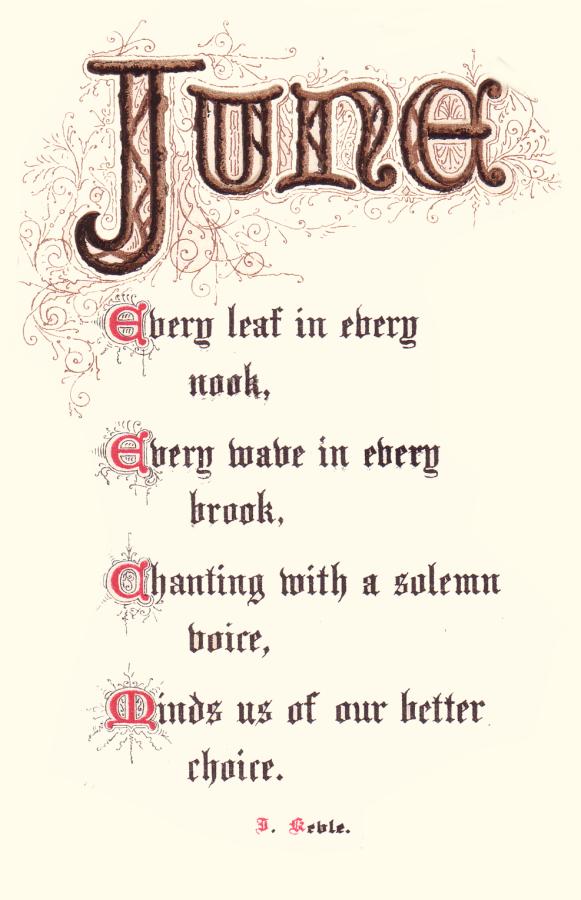 June
Every leaf in every
nook,
Every wave in every
brook,
Chanting with a solemn
voice,
Minds us of our better
choice.
J. Keble.